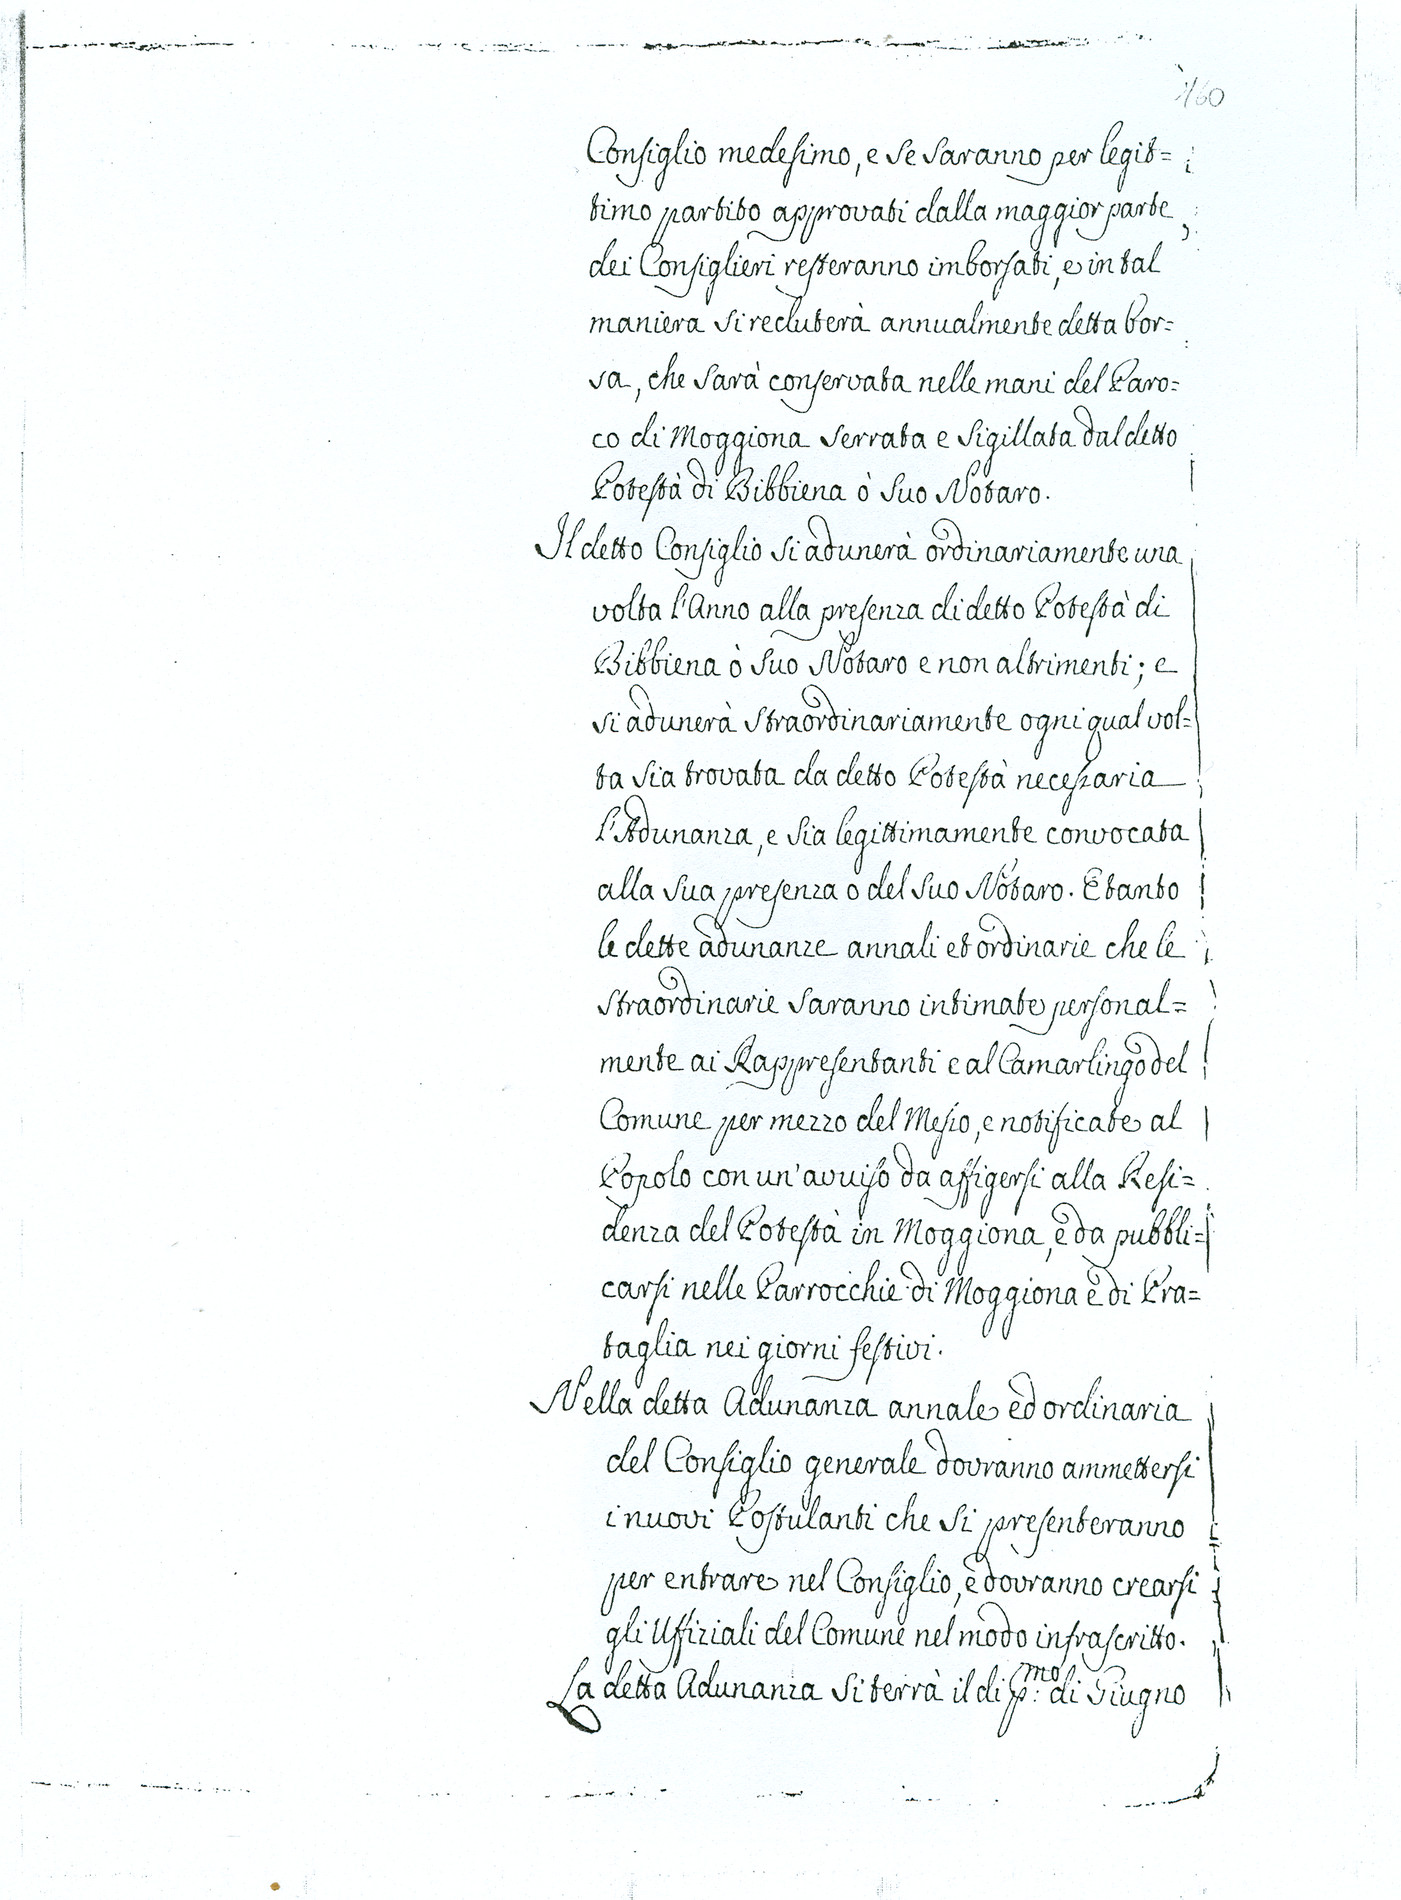 160
Consiglio medesimo, e se saranno per legit=
timo partito approvati dalla maggior parte
dei Consiglieri resteranno imborsati, e in tal
maniera si recluterà annualmente detta bor=
sa, che sarà conservata nelle mani del Paro=
co di Moggiona serrata e sigillata dal detto
Potestà di Bibbiena ò suo Notaro.
Il detto Consiglio si adunerà ordinariamente una
volta l'Anno alla presenza di detto Potestà di
Bibbiena ò suo Notaro e non altrimenti; e
si adunerà straordinariamente ogni qual vol=
ta sia trovata da detto Potestà necessaria
l'Adunanza, e sia legittimamente convocata
alla sua presenza o del suo Notaro. E tanto
le dette adunanze annali et ordinarie che le
straordinarie saranno intimate personal=
mente ai Rappresentanti e al Camarlingo del
Comune per mezzo del Messo, e notificate al
Popolo con un'avviso da affigersi alla Resi=
denza del Potestà in Moggiona, e da pubbli=
carsi nelle Parrocchie di Moggiona e di Pra=
taglia nei giorni festivi.
Nella detta Adunanza annale ed ordinaria
del Consiglio generale dovranno ammettersi
i nuovi Postulanti che si presenteranno
per entrare nel Consiglio, e dovranno crearsi
gli Uffiziali del Comune nel modo infrascritto.
La detta Adunanza si terrà il di p:mo di Giugno